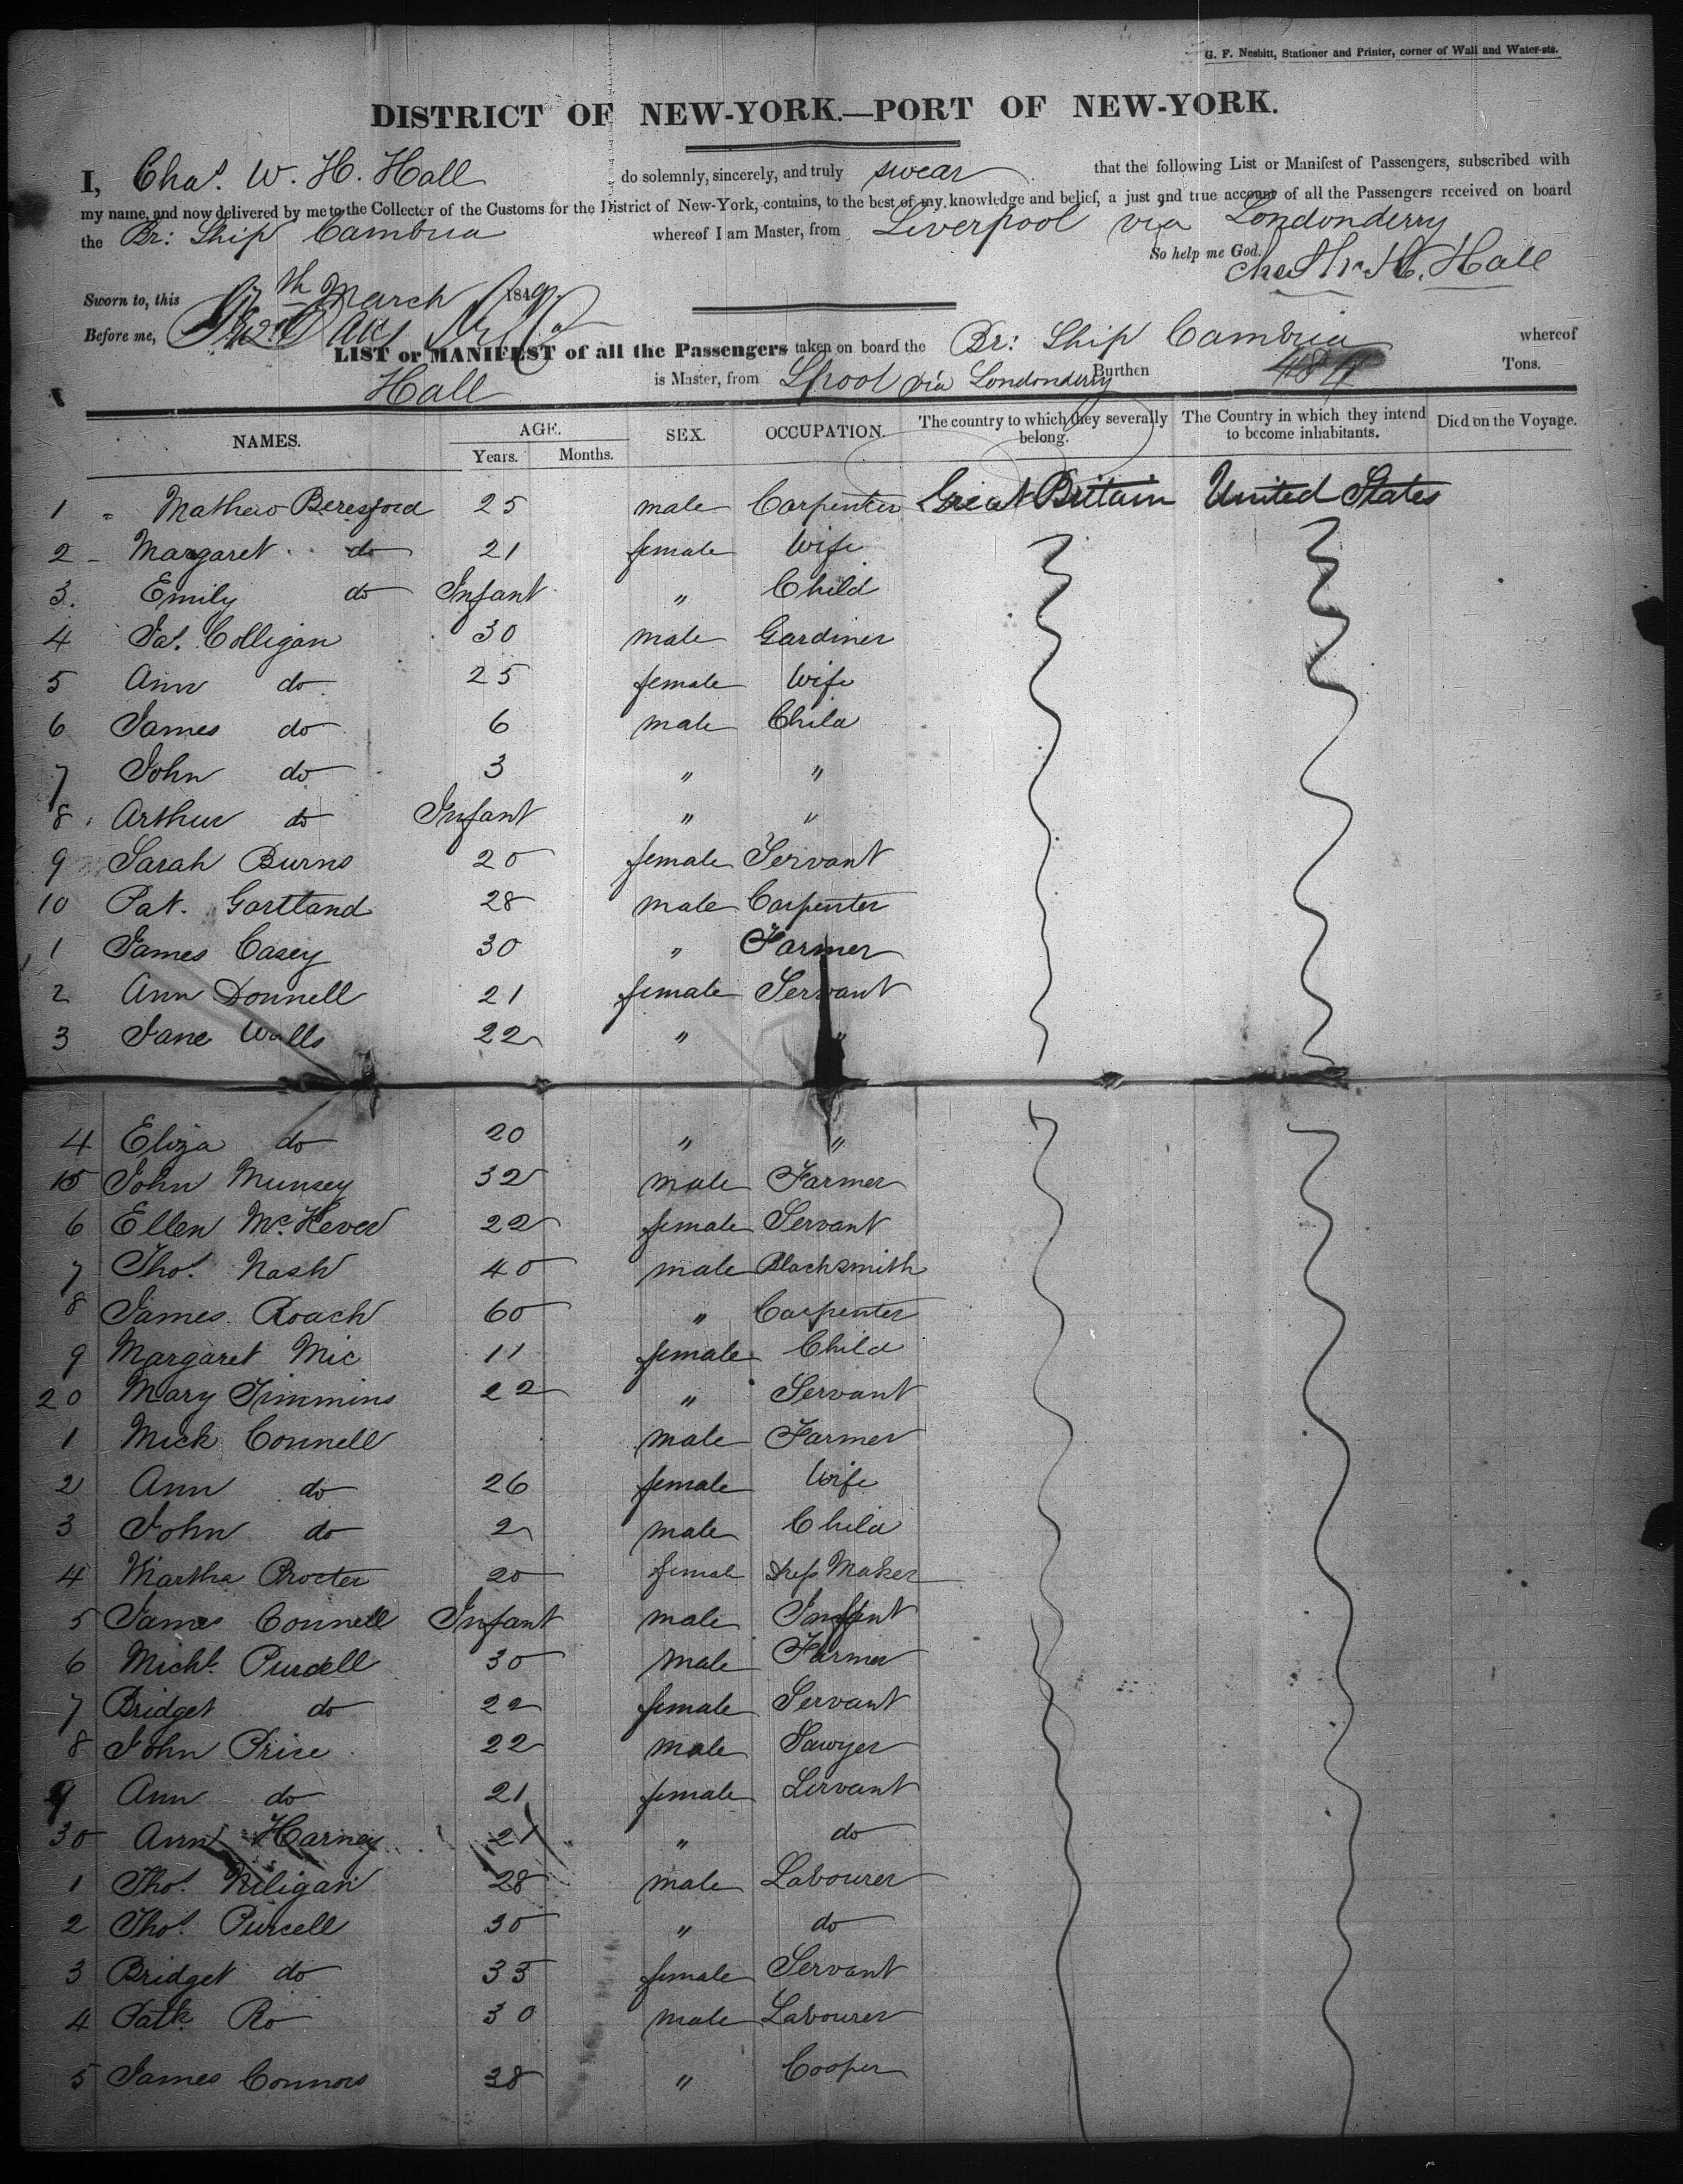 G. F. Nesbitt, Stationer and Printer, corner of Wall and Water-sts.
DISTRICT OF NEW-YORK.—PORT OF NEW-YORK.
I, Chas. W. H. Hall do solemnly, sincerely, and truly swear that the following List or Manifest of Passengers, subscribed with
my name, and now delivered by me to the Collecter of the Customs for the District of New-York, contains, to the best of my knowledge and belief, a just and true account of all the Passengers received on board
the Br: Ship Cambria whereof I am Master, from Liverpool via Londonderry
So help me God. Chas W. H. Hall
Sworn to, this th March 1849
Before me,
LIST or MANIFEST of all the Passengers taken on board the Br: Ship Cambria whereof
Hall is Master, from Lpool via Londonderry Burthen Tons.
NAMES. AGE. SEX. OCCUPATION. The country to which they severally belong. The Country in which they intend to become inhabitants. Died on the Voyage.
Years. Months.
1 " Mathew Beresford 25 male Carpenter Great Britain United States
2 - Margaret do 21 female Wife
3. Emily do Infant " Child
4 Jas. Colligan 30 male Gardiner
5 Ann do 25 female Wife
6 James do 6 male Child
7 John do 3 " "
8 Arthur do Infant " "
9 Sarah Burns 20 female Servant
10 Pat. Gartland 28 male Carpenter
1 James Casey 30 " Farmer
2 Ann Donnell 21 female Servant
3 Jane Walls 22 " "
4 Eliza do 20 " "
15 John Munsey 32 male Farmer
6 Ellen Mc. 22 female Servant
7 Thos. Nash 40 male Blacksmith
8 James Roach 60 " Carpenter
9 Margaret Mic 11 female Child
20 Mary Timmins 22 " Servant
1 Mick Connell male Farmer
2 Ann do 26 female Wife
3 John do 2 male Child
4 Martha Procter 20 female Dress Maker
5 James Connell Infant male Infant
6 Michl. Purcell 30 male Farmer
7 Bridget do 22 female Servant
8 John Price 22 male Sawyer
9 Ann do 21 female Servant
30 Ann Harney 21 " do
1 Thos. Niligan 28 male Labourer
2 Thos. Purcell 30 " do
3 Bridget do 35 female Servant
4 Patk Ro 30 male Labourer
5 James Connors 38 " Cooper